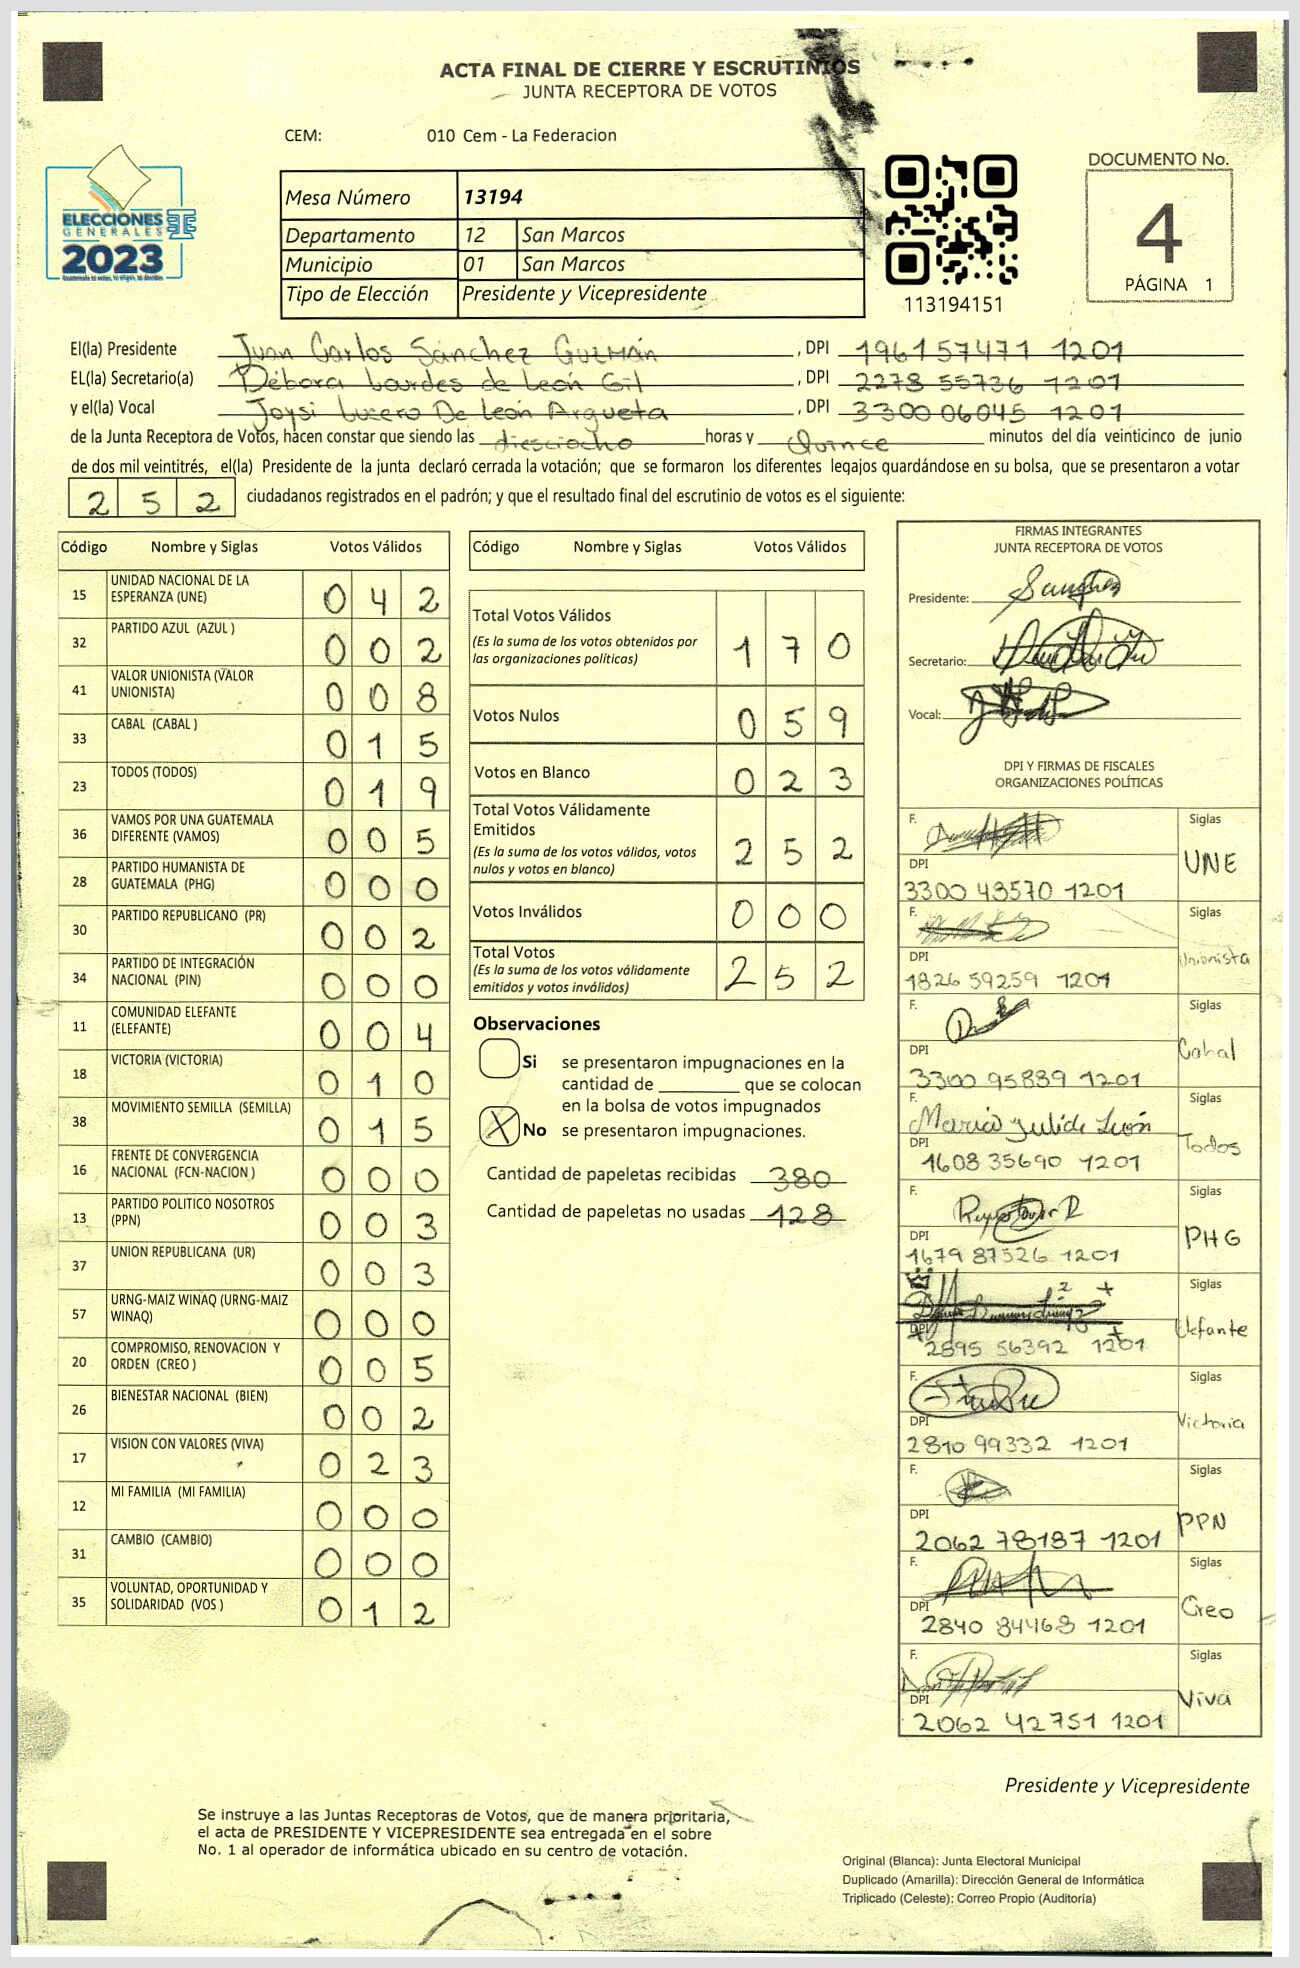 ACTA FINAL DE CIERRE Y ESCRUTINIOS
JUNTA RECEPTORA DE VOTOS
CEM: 010 Cem - La Federacion
ELECCIONES
GENERALES
2023
Mesa Número 13194
Departamento 12 San Marcos
Municipio 01 San Marcos
Tipo de Elección Presidente y Vicepresidente
113194151
DOCUMENTO No.
4
PÁGINA 1
El(la) Presidente Juan Carlos Sánchez Guzmán, DPI 1961 57471 1201
EL(la) Secretario(a) Débora Lourdes de León Gil, DPI 2278 55736 1201
y el(la) Vocal Joysi Lucero De León Argueta, DPI 3300 06045 1201
de la Junta Receptora de Votos, hacen constar que siendo las diesciocho horas y Quince minutos del día veinticinco de junio
de dos mil veintitrés, el(la) Presidente de la junta declaró cerrada la votación; que se formaron los diferentes legajos guardándose en su bolsa, que se presentaron a votar
2 5 2 ciudadanos registrados en el padrón; y que el resultado final del escrutinio de votos es el siguiente:
Código Nombre y Siglas Votos Válidos
15 UNIDAD NACIONAL DE LA ESPERANZA (UNE) 0 4 2
32 PARTIDO AZUL (AZUL ) 0 0 2
41 VALOR UNIONISTA (VALOR UNIONISTA) 0 0 8
33 CABAL (CABAL ) 0 1 5
23 TODOS (TODOS) 0 1 9
36 VAMOS POR UNA GUATEMALA DIFERENTE (VAMOS) 0 0 5
28 PARTIDO HUMANISTA DE GUATEMALA (PHG) 0 0 0
30 PARTIDO REPUBLICANO (PR) 0 0 2
34 PARTIDO DE INTEGRACIÓN NACIONAL (PIN) 0 0 0
11 COMUNIDAD ELEFANTE (ELEFANTE) 0 0 4
18 VICTORIA (VICTORIA) 0 1 0
38 MOVIMIENTO SEMILLA (SEMILLA) 0 1 5
16 FRENTE DE CONVERGENCIA NACIONAL (FCN-NACION ) 0 0 0
13 PARTIDO POLITICO NOSOTROS (PPN) 0 0 3
37 UNION REPUBLICANA (UR) 0 0 3
57 URNG-MAIZ WINAQ (URNG-MAIZ WINAQ) 0 0 0
20 COMPROMISO, RENOVACION Y ORDEN (CREO ) 0 0 5
26 BIENESTAR NACIONAL (BIEN) 0 0 2
17 VISION CON VALORES (VIVA) 0 2 3
12 MI FAMILIA (MI FAMILIA) 0 0 0
31 CAMBIO (CAMBIO) 0 0 0
35 VOLUNTAD, OPORTUNIDAD Y SOLIDARIDAD (VOS ) 0 1 2
Código Nombre y Siglas Votos Válidos
Total Votos Válidos
(Es la suma de los votos obtenidos por las organizaciones políticas) 1 7 0
Votos Nulos 0 5 9
Votos en Blanco 0 2 3
Total Votos Válidamente Emitidos
(Es la suma de los votos válidos, votos nulos y votos en blanco) 2 5 2
Votos Inválidos 0 0 0
Total Votos
(Es la suma de los votos válidamente emitidos y votos inválidos) 2 5 2
Observaciones
Si se presentaron impugnaciones en la
cantidad de que se colocan
en la bolsa de votos impugnados
X No se presentaron impugnaciones.
Cantidad de papeletas recibidas 380
Cantidad de papeletas no usadas 128
FIRMAS INTEGRANTES
JUNTA RECEPTORA DE VOTOS
Presidente:
Secretario:
Vocal:
DPI Y FIRMAS DE FISCALES
ORGANIZACIONES POLÍTICAS
F. Siglas UNE
DPI 3300 43570 1201
F. Siglas Unionista
DPI 1826 59259 1201
F. Siglas Cabal
DPI 3300 95839 1201
F. Siglas Todos
DPI 1608 35690 1201
F. Siglas PHG
DPI 1679 87526 1201
Siglas Elefante
DPI 2895 56392 1201
F. Siglas Victoria
DPI 2810 99332 1201
F. Siglas PPN
DPI 2062 78187 1201
F. Siglas Creo
DPI 2840 84468 1201
F. Siglas Viva
DPI 2062 42751 1201
Presidente y Vicepresidente
Se instruye a las Juntas Receptoras de Votos, que de manera prioritaria,
el acta de PRESIDENTE Y VICEPRESIDENTE sea entregada en el sobre
No. 1 al operador de informática ubicado en su centro de votación.
Original (Blanca): Junta Electoral Municipal
Duplicado (Amarilla): Dirección General de Informática
Triplicado (Celeste): Correo Propio (Auditoría)